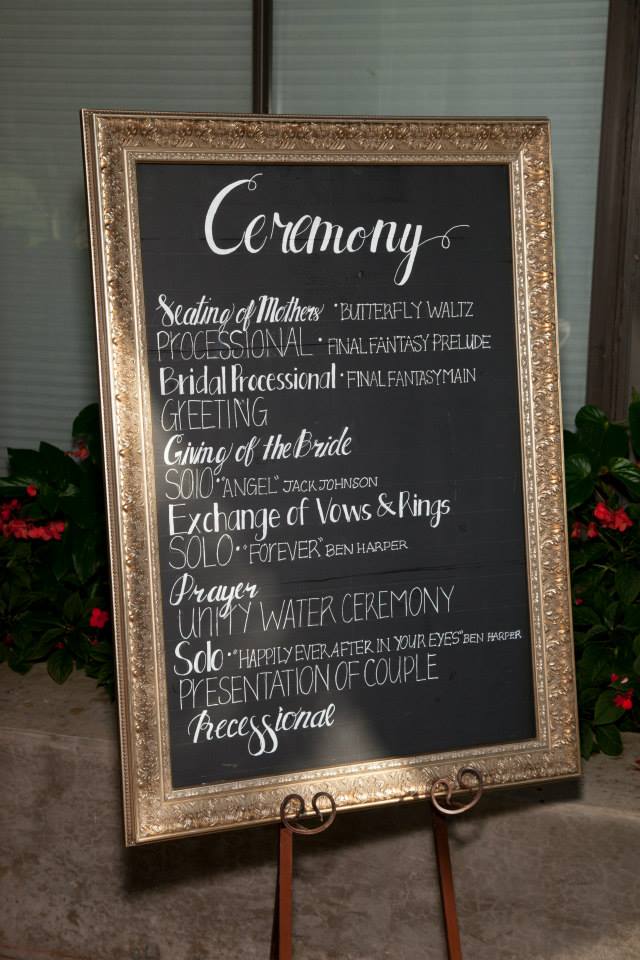 Ceremony
Seating of Mothers • BUTTERFLY WALTZ
PROCESSIONAL • FINAL FANTASY PRELUDE
Bridal Processional • FINAL FANTASY MAIN
GREETING
Giving of the Bride
SOLO • "ANGEL" JACK JOHNSON
Exchange of Vows & Rings
SOLO • "FOREVER" BEN HARPER
Prayer
UNITY WATER CEREMONY
Solo • "HAPPILY EVER AFTER IN YOUR EYES" BEN HARPER
PRESENTATION OF COUPLE
Precessional